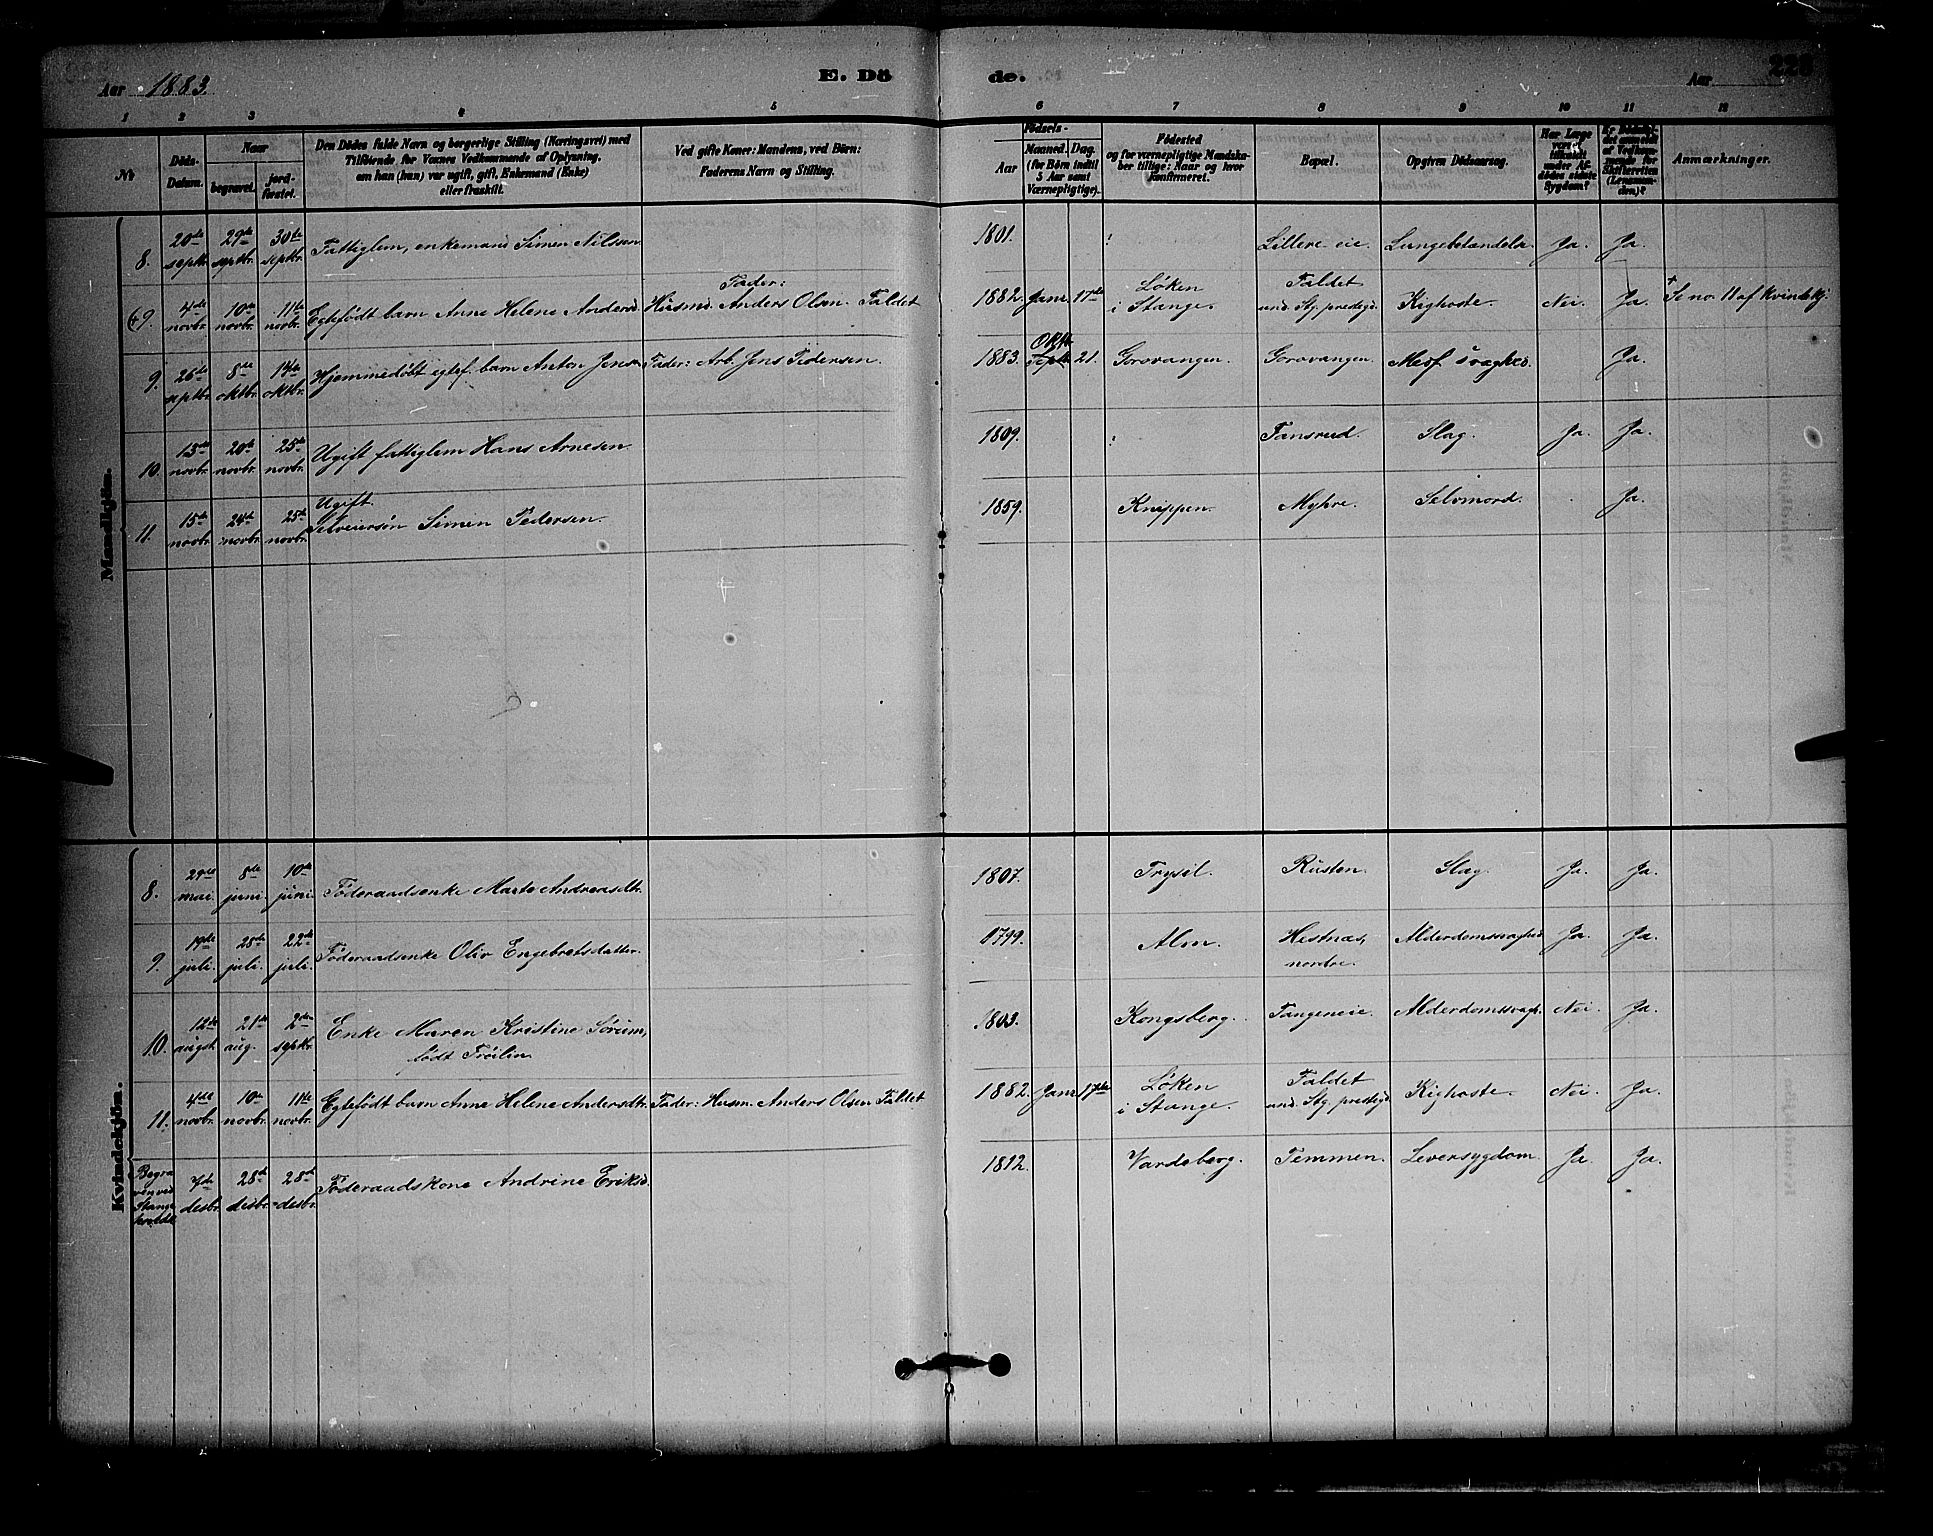 Aar 1883. E. Dö de. Aar 228
1 2 3 4 5 6 7 8 9 10 11 12
№ Döds-Datum. Naar begravet. jordfæstet. Den Dödes fulde Navn og borgerlige Stilling (Næringsvei) med Tilföiende for Voxnes Vedkommende af Oplysning, om han (hun) var ugift, gift, Enkemand (Enke) eller fraskilt. Ved gifte Koner: Mandens, ved Börn: Faderens Navn og Stilling. Födsels- Aar Maaned. Dag. (for Börn indtil 5 Aar samt Værnepligtige). Födested og for værnepligtige Mandskaber tillige: Naar og hvor konfirmeret. Bopæl. Opgiven Dödsaarsag. Har Læge været tilkaldt under Afdödes sidste Sygdom? Er Dödsfaldet anmeldt af Vedkommende for Skifteretten (Lensmanden)? Anmærkninger.
Mandkjön.
8. 20de septbr. 29de septbr. 30te septbr. Fattiglem, enkemand Simen Nilsen 1801. Lillere eie. Lungebetændels. Ja. Ja.
(9. 4de novbr. 10de novbr. 11te novbr. Egtefødt barn Anne Helene Andersd. Fader: Husmd. Anders Olsen Faldet 1882. Janr. 17de Løken i Stange. Faldet und. Stg. prestegd. Kighoste. Nei. Ja. † Se no. 11 af kvindekj:
9. 26de septbr. 8de oktbr. 14de oktbr. Hjemmedøbt egtef. barn Anton Jensen Fader: Arb. Jens Pedersen. 1883. Septbr. Oktbr. 21. Gorovangen. Gorovangen. Medf. svaghed. Ja.
10. 13de novbr. 20de novbr. 25de novbr. Ugift fattiglem Hans Arnesen 1809. Fansrud. Slag. Ja. Ja.
11. 15de novbr. 24de novbr. 25de novbr. Ugift Selveiersøn Simen Pedersen. 1859. Knippen. Myhre. Selvmord. Ja.
Kvindekjön.
8. 29de mai. 8de juni. 10de juni. Føderaadsenke Marte Andreasdtr. 1807. Trysil. Rusten. Slag. Ja. Ja.
9. 19de juli. 28de juli. 22de juli. Føderaadsenke Oliv Engebretsdatter. 1799. Alm. Hestnæs, nordre. Alderdomssvaghed Ja. Ja.
10. 12te augst. 21de aug. 2den septbr. Enke Maren Kristine Sørum, født Frøilin 1803. Kongsberg. Tangeneie. Alderdomssvagh. Nei. Ja.
11. 4de novbr. 10de novbr. 11te novbr. Egtefødt barn Anne Helene Andersdtr. Fader: Husm. Anders Olsen Faldet 1882 Janr. 17de Løken i Stange. Faldet und. Stg. prestegd. Kighoste. Nei. Ja.
Begraven ved Stange hvedk. 7de desbr. 28de desbr. 28de desbr. Føderaadskone Andrine Eriksd. 1812. Vardeberg. Temmen. Leversygdom. Ja. Ja.